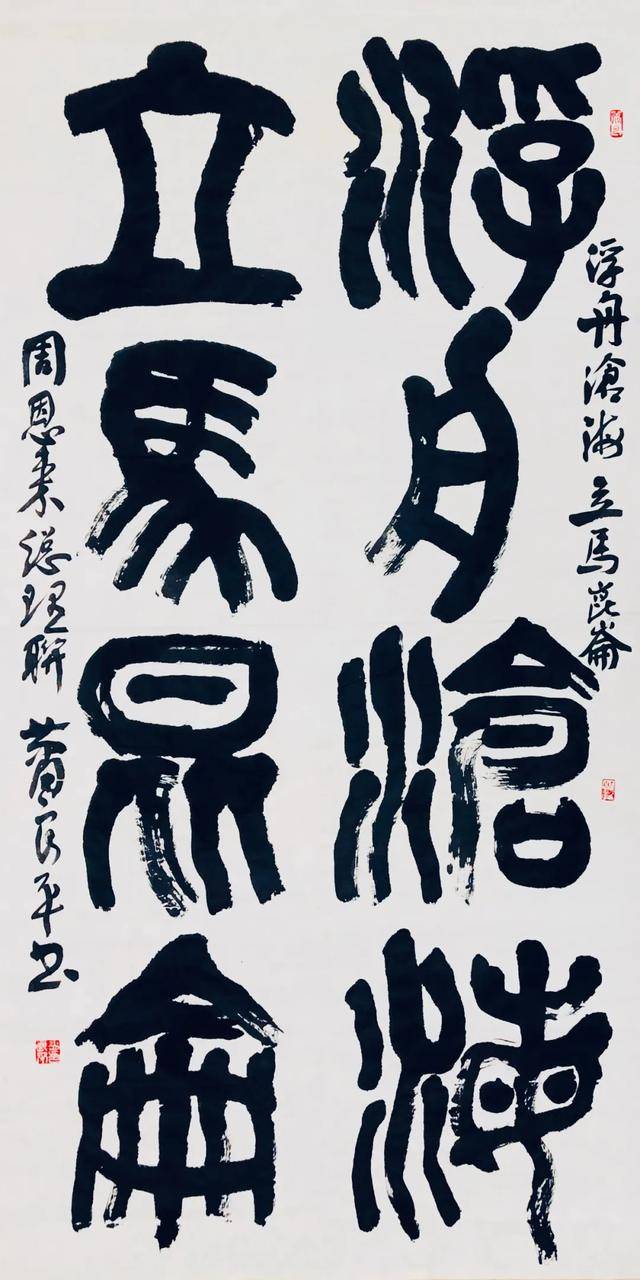 浮舟滄海立馬崑崙
浮舟滄海
立馬昆侖
周恩来總理聯 平书